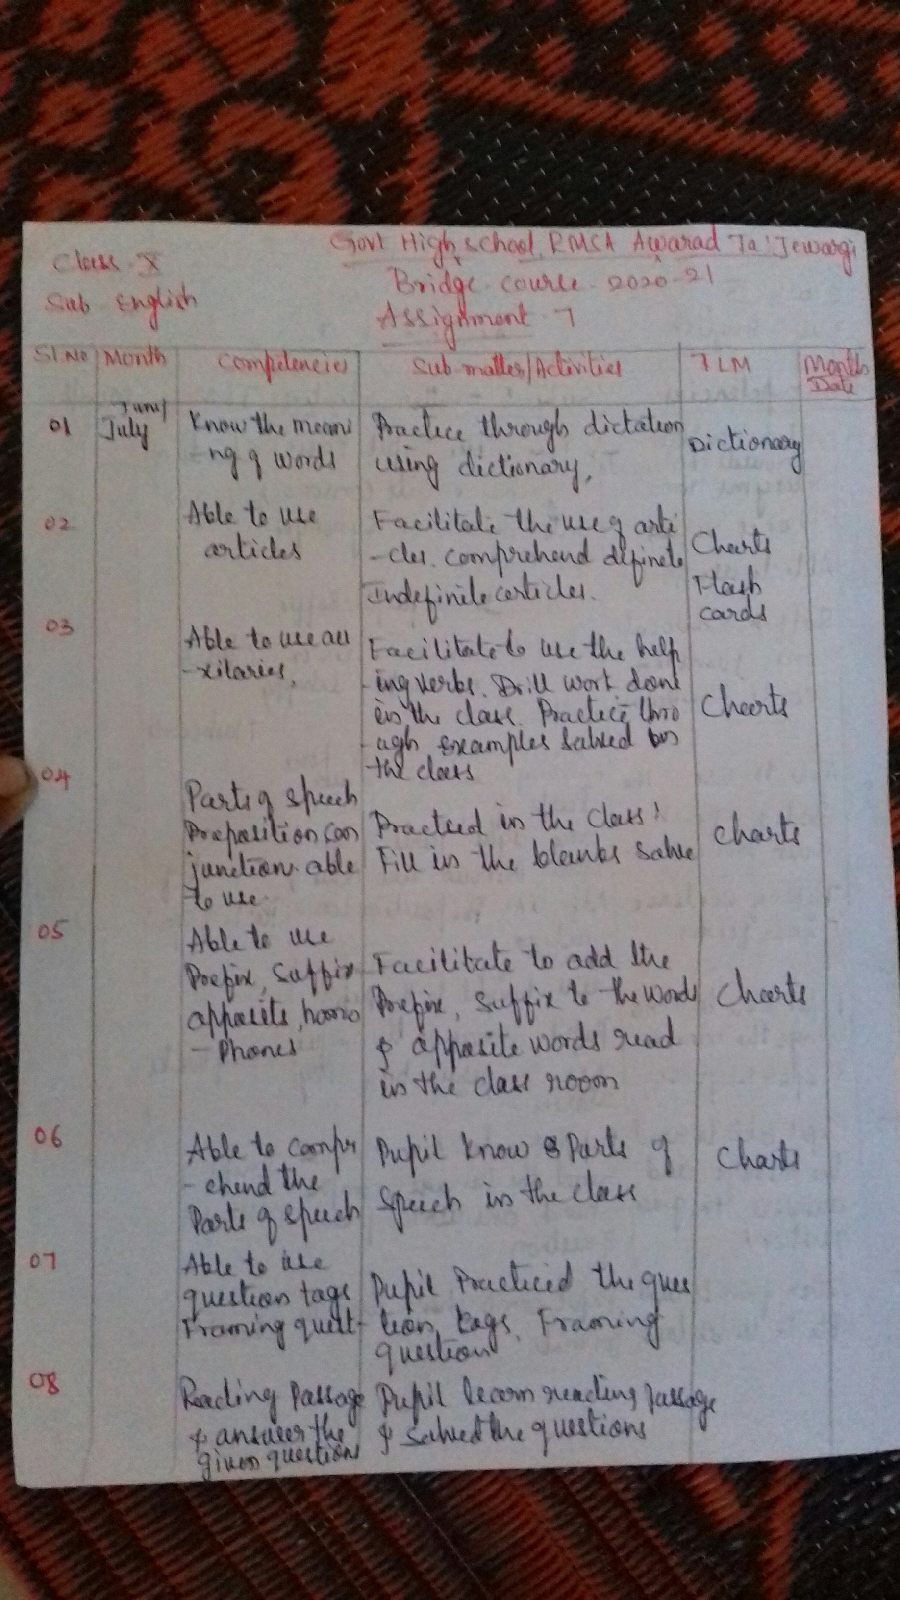 Govt High school RMSA Awarad Ta: Jewargi
Class - X
Bridge course - 2020-21
Sub - English
Assignment - 7
Sl.No Month Competencies Sub matter/Activities TLM Month Date
01 June/ July Know the meani Practice through dictation Dictionary
-ng of words using dictionary,
02 Able to use Facilitate the use of arti Charts
articles -cles. comprehend definite Flash
Indefinite articles. cards
03 Able to use au Facilitate to use the help Charts
-xilaries, -ing verbs. Drill work done
in the class. Practice thro
-ugh examples solved
the class
04 Parts of speech Practised in the class! Charts
Preposition Con Fill in the blanks solve
junction. able
to use.
05 Able to use Facilitate to add the Charts
Prefix, Suffix Prefix, Suffix to the words
apposits, homo & apposite words read
-Phones in the class room
06 Able to compr Pupil know 8 Parts of Charts
-ehend the Speech in the class
Parts of speech
07 Able to use Pupil Practiced the ques
question tags tion tags, Framing
Framing quest- question
08 Reading Passage Pupil learn reading passage
& answer the & solved the questions
given questions